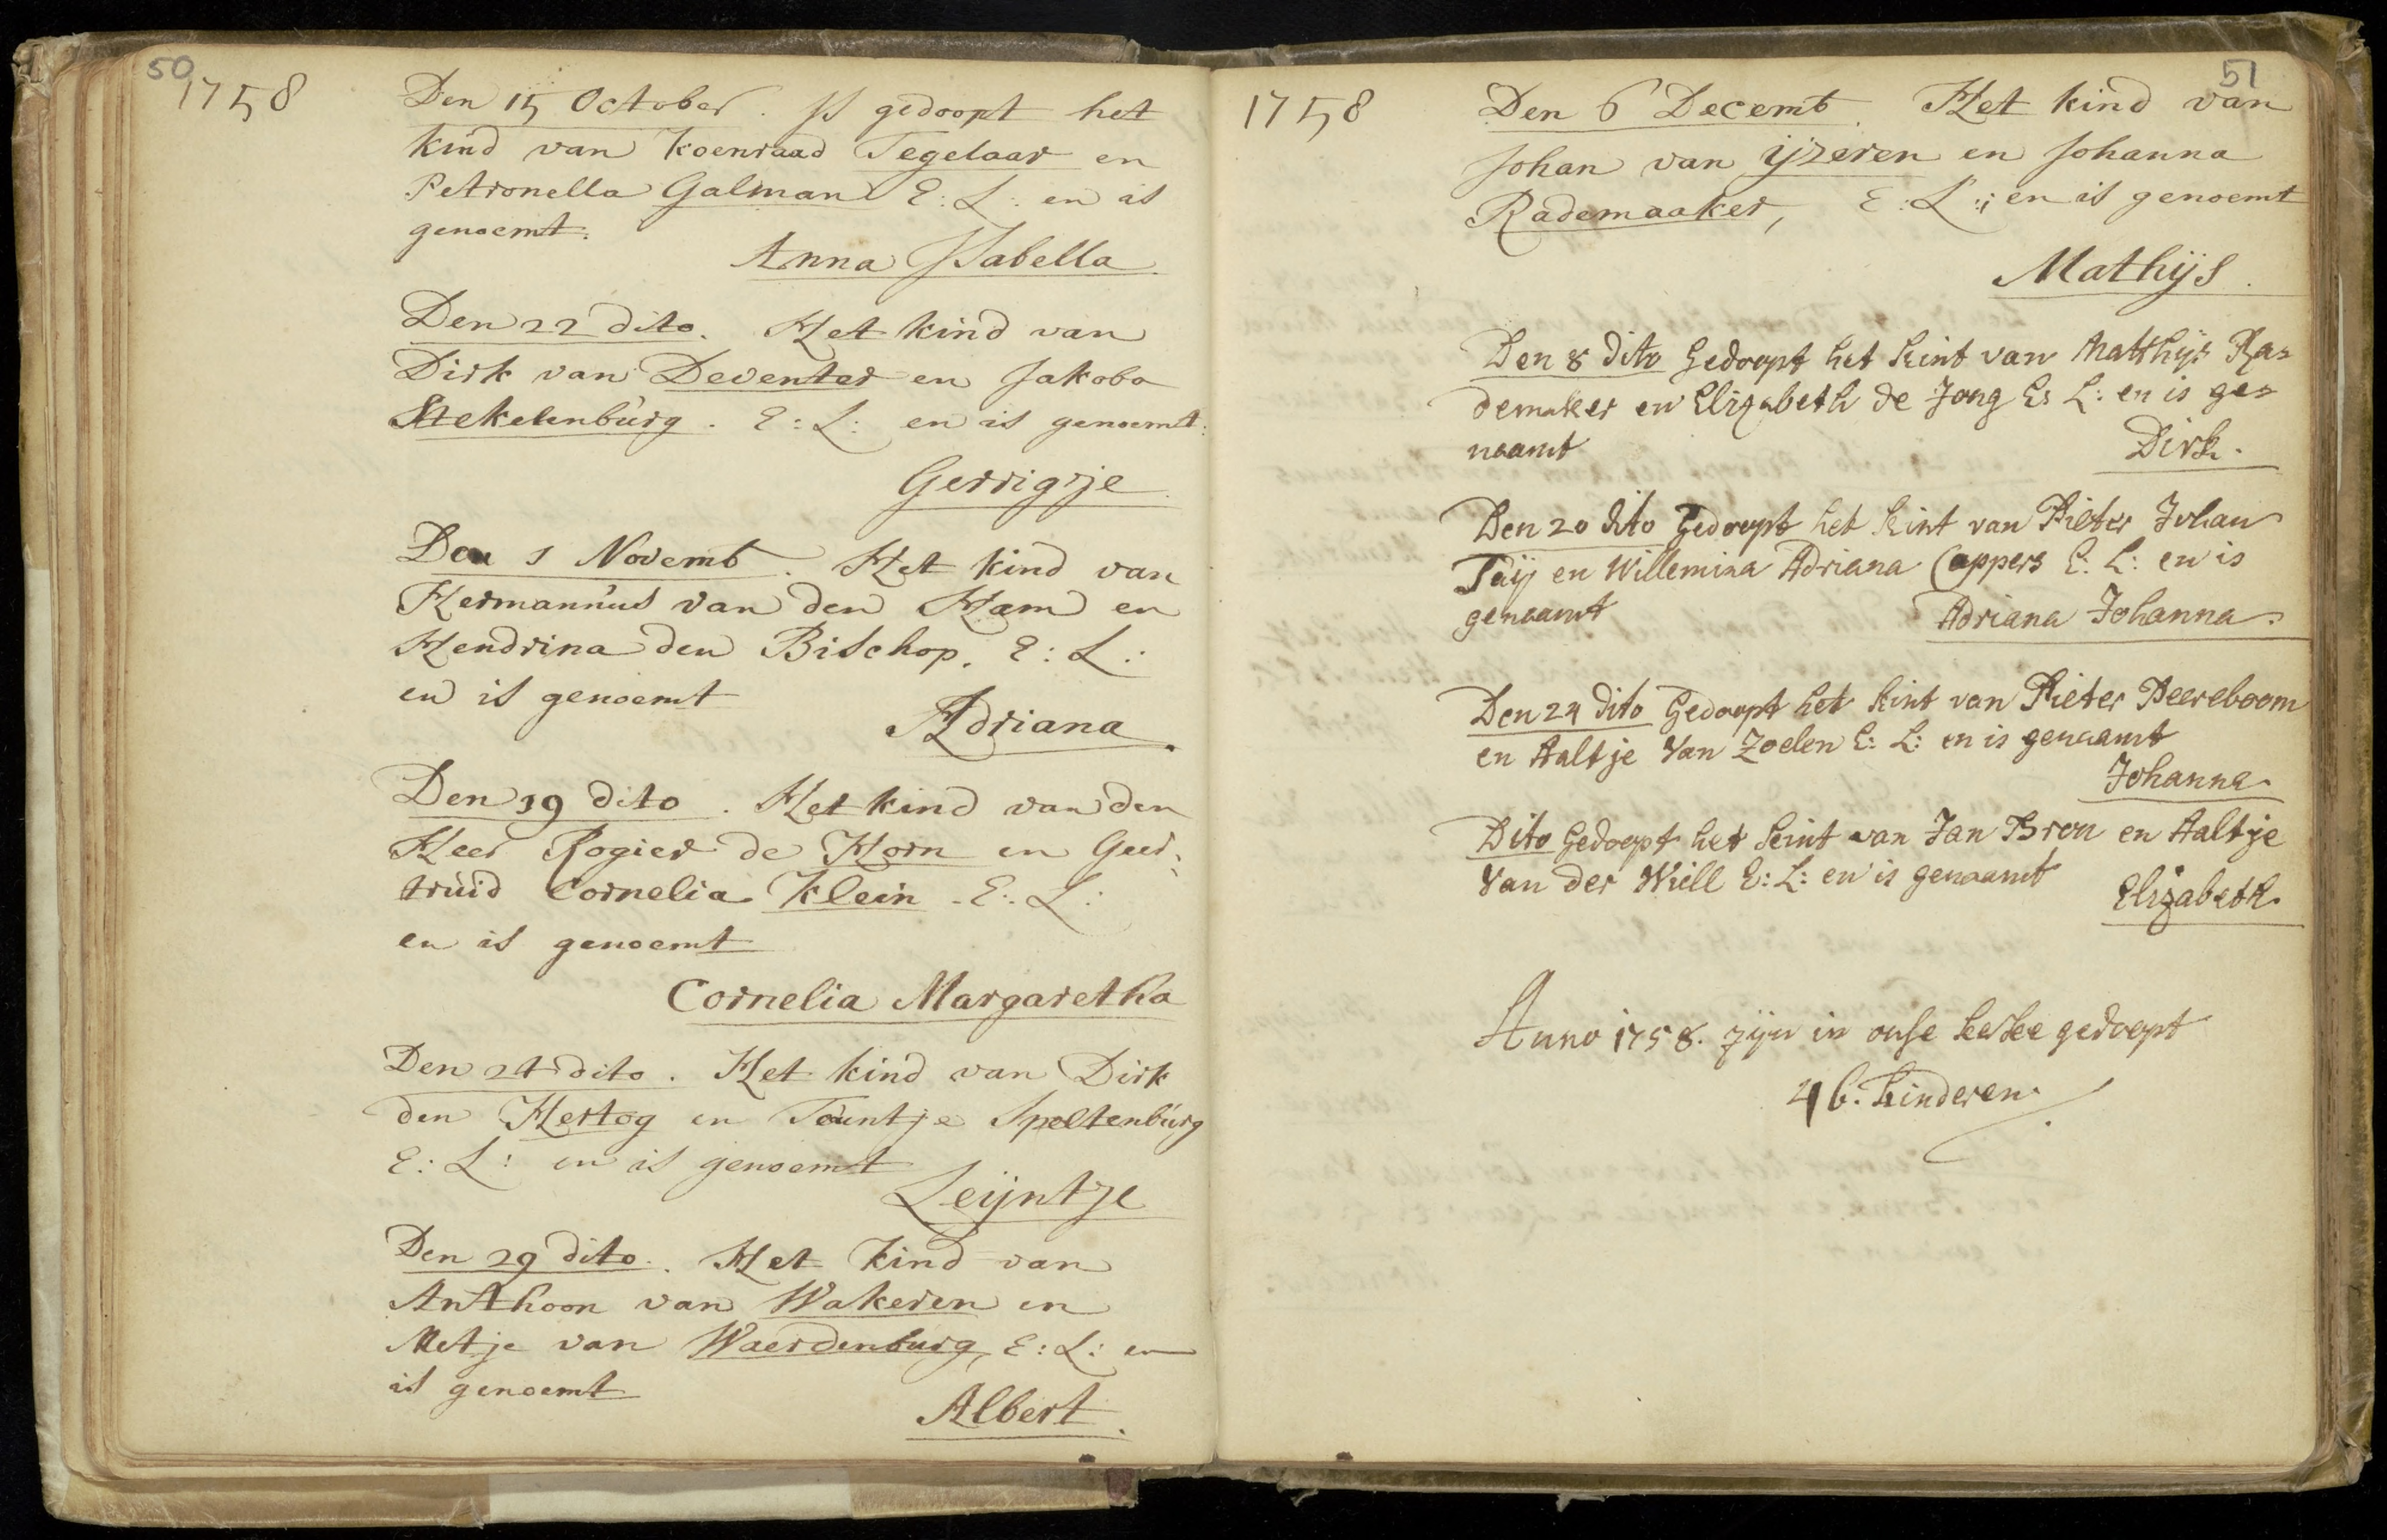 50
1758
Den 15 October. Is gedoopt het
kind van Koenraad Tegelaar en
Petronella Galman E: L: en is
genoemt.
Anna Isabella.
Den 22 dito. Het kind van
Dirk van Deventer en Jakoba
Stekelenburg. E: L: en is genoemt:
Gerrigje.
Den 1 Novemb. Het kind van
Hermannus van den Ham en
Hendrina den Bischop. E: L:
en is genoemt
Adriana.
Den 19 dito. Het kind van den
Heer Rogier de Horn en Geer-
truid Cornelia Klein. E: L:
en is genoemt
Cornelia Margaretha
Den 24 dito. Het kind van Dirk
den Hertog en Teuntje Speltenburg
E: L: en is genoemt
Leijntje
Den 29 dito. Het kind van
Anthoon van Wakeren en
Metje van Waerdenburg, E: L: en
is genoemt
Albert.
51
1758
Den 6 Decemb. Het kind van
Johan van ijzeren en Johanna
Rademaaker, E: L:; en is genoemt
Mathijs.
Den 8 dito Gedoopt het kint van Matthijs Ra=
demaker en Elizabeth de Jong E: L: en is ge=
naamt
Dirk.
Den 20 dito Gedoopt het kint van Pieter Johan
en Willemina Adriana Cappers E: L: en is
genaamt
Adriana Johanna.
Den 24 dito Gedoopt het kint van Pieter Peereboom
en Aaltje Van Zoelen E: L: en is genaamt
Johanna.
Dito Gedoopt het kint van Jan Bron en Aaltje
Van der Will E: L: en is genaamt
Elizabeth.
Anno 1758. zijn in onse kerke gedoopt
46. kinderen.